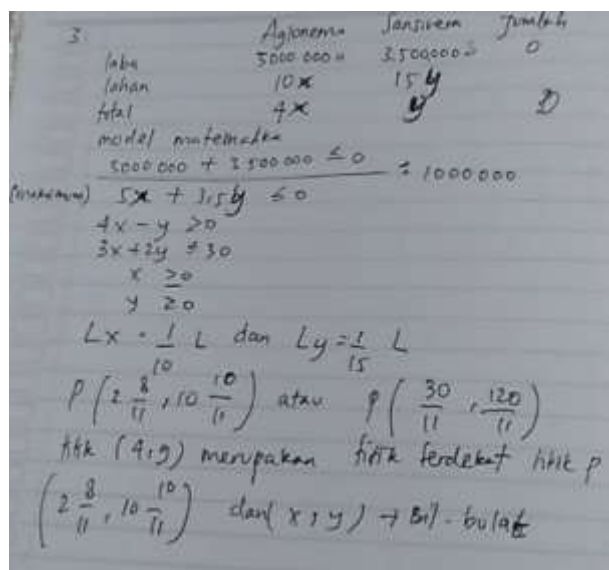 3. Aglonema Sansivera Jumlah
laba 5000 000 x 3.500,000 0
lahan 10 x 15 y
total 4 x y 0
model matematika
5000 000 + 3 500 000 ≤ 0 : 1000 000
(maksimum) 5x + 3,5y ≤ 0
4x - y ≥ 0
3x + 2y ≤ 30
x ≥ 0
y ≥ 0
Lx = 1/10 L dan Ly = 1/15 L
P (2 8/11, 10 10/11) atau P (30/11, 120/11)
titik (4,9) merupakan titik terdekat titik P
(2 8/11, 10 10/11) dan (x, y) → Bil. bulat